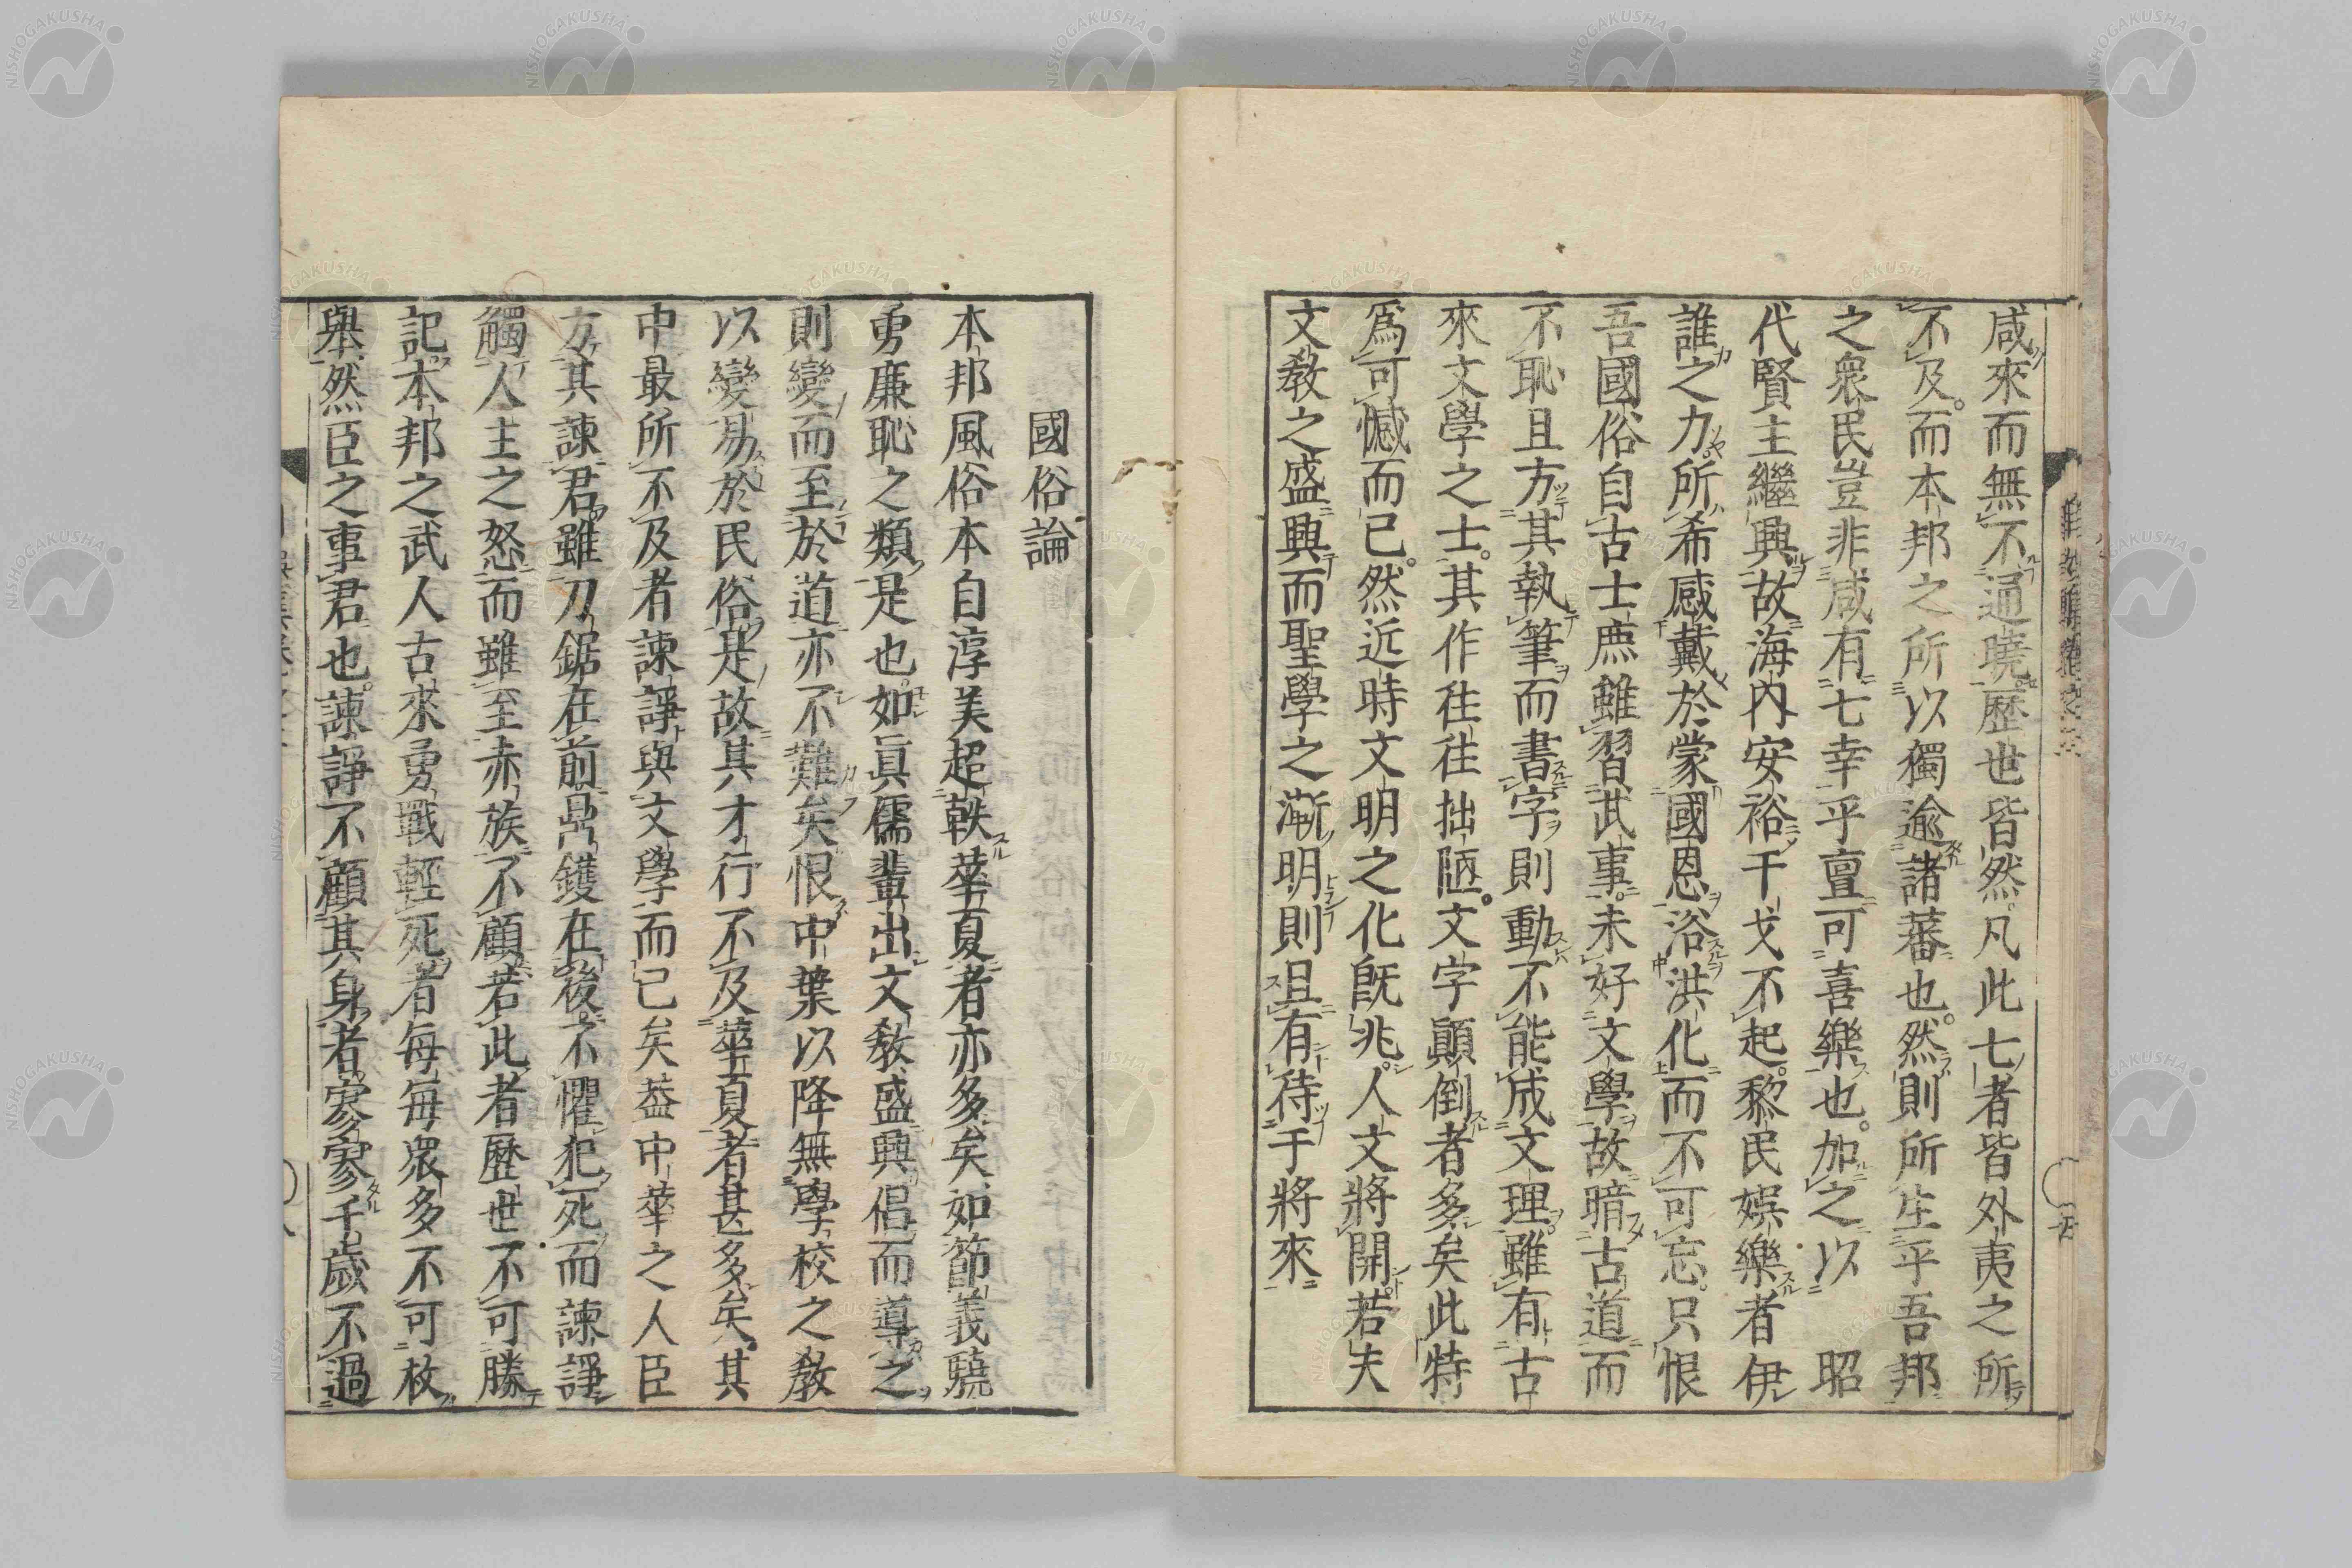 咸來而無不通曉歷世皆然凡此七者皆外夷之所
不及而本邦之所以獨逾諸蕃也然則所生乎吾邦
之衆民豈非咸有七幸乎亶可喜樂也加之以　昭
代賢主繼興故海内安裕干戈不起黎民娯樂者伊
誰之力所希感戴於蒙國恩浴洪化而不可忘只恨
吾國俗自古士庶雖習武事未好文學故暗古道而
不恥且方其執筆而書字則動不能成文理雖有古
來文學之士其作徃徃拙陋文字顚倒者多矣此特
爲可憾而已然近時文明之化既兆人文將開若夫
文敎之盛興而聖學之漸明則且有待于將來
國俗論
本邦風俗本自淳美超軼華夏者亦多矣如節義驍
勇廉恥之類是也如眞儒輩出文敎盛興倡而導之
則變而至於道亦不難矣恨中葉以降無學校之敎
以變易於民俗是故其才行不及華夏者甚多矣其
中最所不及者諫諍與文學而已矣蓋中華之人臣
方其諫君雖刀鋸在前鼎鑊在後不懼犯死而諫諍
觸人主之怒而雖至赤族不顧若此者歷世不可勝
記本邦之武人古來勇戰輕死者每每衆多不可枚
舉然臣之事君也諫諍不顧其身者寥寥千歲不過
NISHOGAKUSHA